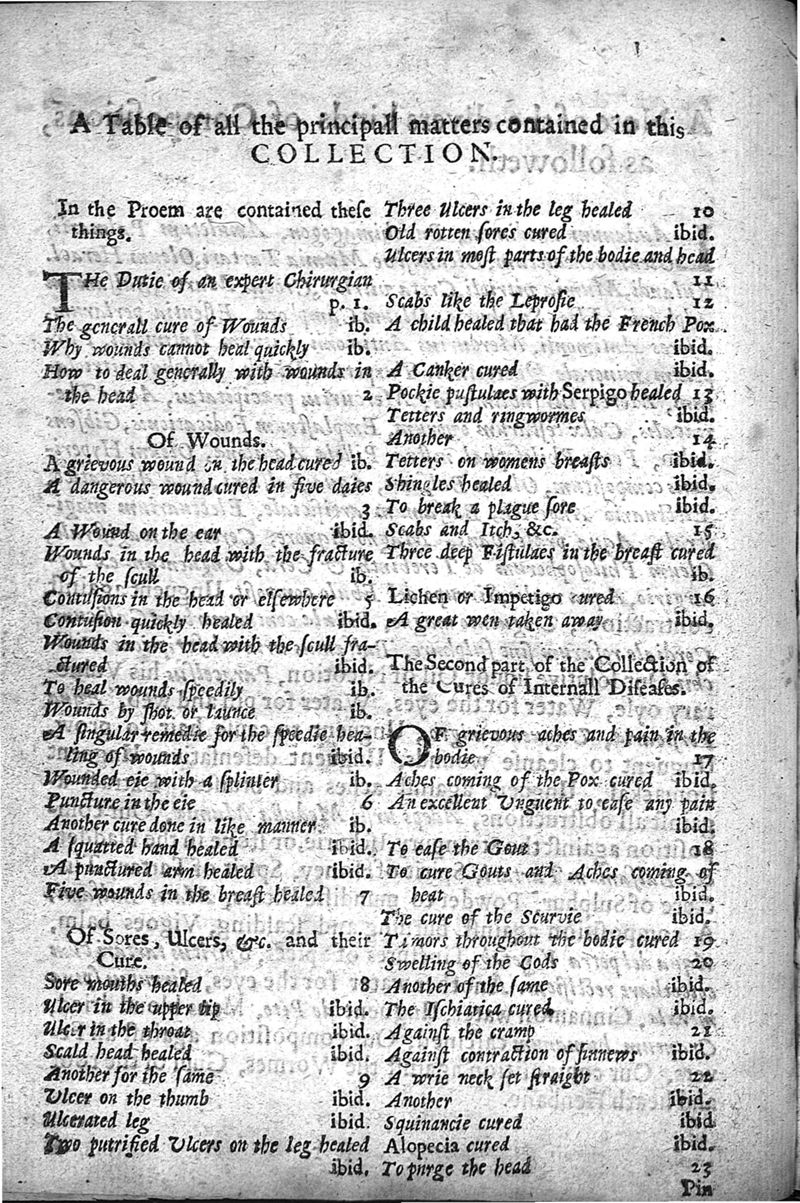 A Table of all the principall matters contained in this
COLLECTION.
In the Proem are contained theſe
things.
THe Dutie of an expert Chirurgian
p. 1.
The generall cure of Wounds ib.
Why wounds cannot heal quickly ib.
How to deal generally with wounds in
the head 2
Of Wounds.
A grievous wound in the head cured ib.
A dangerous wound cured in five daies
3
A Wound on the ear ibid.
Wounds in the head with the fracture
of the ſcull ib.
Contuſions in the head or elſewhere 5
Contuſion quickly healed ibid.
Wounds in the head with the ſcull fra-
ctured ibid.
To heal wounds ſpeedily ib.
Wounds by ſhot or launce ib.
A ſingular remedie for the ſpeedie hea-
ling of wounds ibid.
Wounded eie with a ſplinter ib.
Puncture in the eie 6
Another cure done in like manner ib.
A ſquatted hand healed ibid.
A punctured arm healed ibid.
Five wounds in the breaſt healed 7
Of Sores, Ulcers, &c. and their
Cure.
Sore mouths healed 8
Ulcer in the upper lip ibid.
Ulcer in the throat ibid.
Scald head healed ibid.
Another for the ſame 9
Ulcer on the thumb ibid.
Ulcerated leg ibid.
Two putrified Ulcers on the leg healed
ibid.
Three Ulcers in the leg healed 10
Old rotten ſores cured ibid.
Ulcers in moſt parts of the bodie and head
11
Scabs like the Leproſie 12
A child healed that had the French Pox
ibid.
A Canker cured ibid.
Pockie puſtulaes with Serpigo healed 13
Tetters and ringwormes ibid.
Another 14
Tetters on womens breaſts ibid.
Shingles healed ibid.
To break a plague ſore ibid.
Scabs and Itch, &c. 15
Three deep Fiſtulaes in the breaſt cured
ib.
Lichen or Impetigo cured 16
A great wen taken away ibid.
The Second part of the Collection of
the Cures of Internall Diſeaſes.
OF grievous aches and pain in the
bodie 17
Aches coming of the Pox cured ibid.
An excellent Unguent to eaſe any pain
ibid.
To eaſe the Gout 18
To cure Gouts and Aches coming of
heat ibid.
The cure of the Scurvie ibid.
Tumors throughout the bodie cured 19
Swelling of the Cods 20
Another of the ſame ibid.
The Iſchiatica cured ibid.
Againſt the cramp 21
Againſt contraction of ſinnews ibid.
A wrie neck ſet ſtraight 22
Another ibid.
Squinancie cured ibid
Alopecia cured ibid.
To purge the head 23
Pin